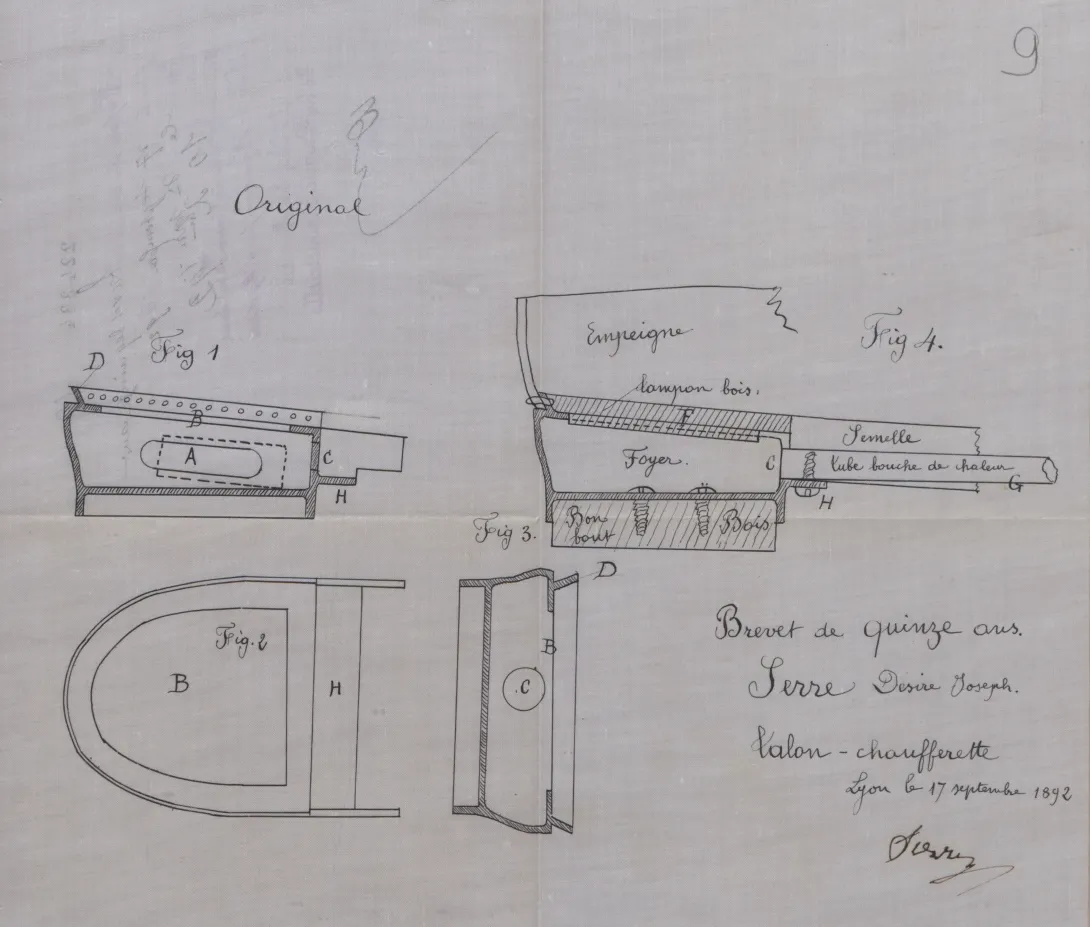 9
Original
Fig 1
D
B
A
C
H
Fig 4.
Empeigne
tampon bois.
F
Semelle
Foyer.
C
tube bouche de chaleur
G
H
Bon
bout
Bois
Fig. 2
B
H
Fig 3.
D
B
C
Brevet de quinze ans.
Serre Désiré Joseph.
Talon - chaufferette
Lyon le 17 septembre 1892
Serre